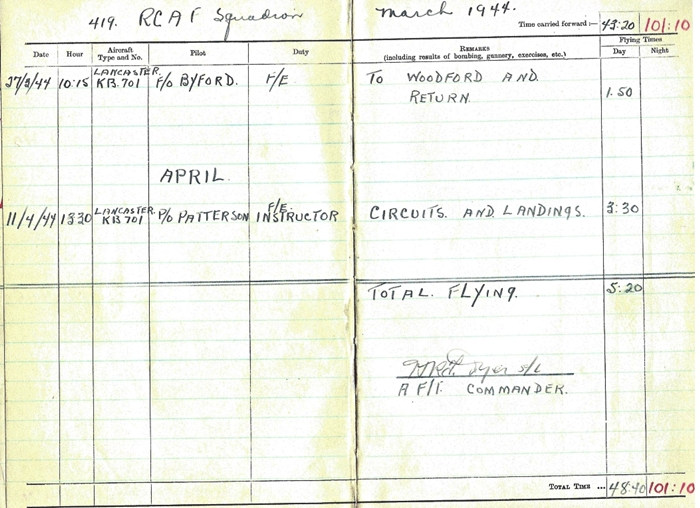 419. RCAF Squadron March 1944.
Time carried forward :— 43:20 101:10
Date Hour Aircraft Type and No. Pilot Duty REMARKS (including results of bombing, gunnery, exercises, etc.) Flying Times Day Night
27/3/44 10:15 LANCASTER. KB.701 F/o BYFORD. F/E. TO WOODFORD AND
RETURN. 1.50
APRIL.
11/4/44 1330 LANCASTER. KB701 P/o PATTERSON F/E. INSTRUCTOR CIRCUITS. AND LANDINGS. 3:30
TOTAL. FLYING. 5:20
s/l
A F/T. COMMANDER.
TOTAL TIME ... 48:40 101:10